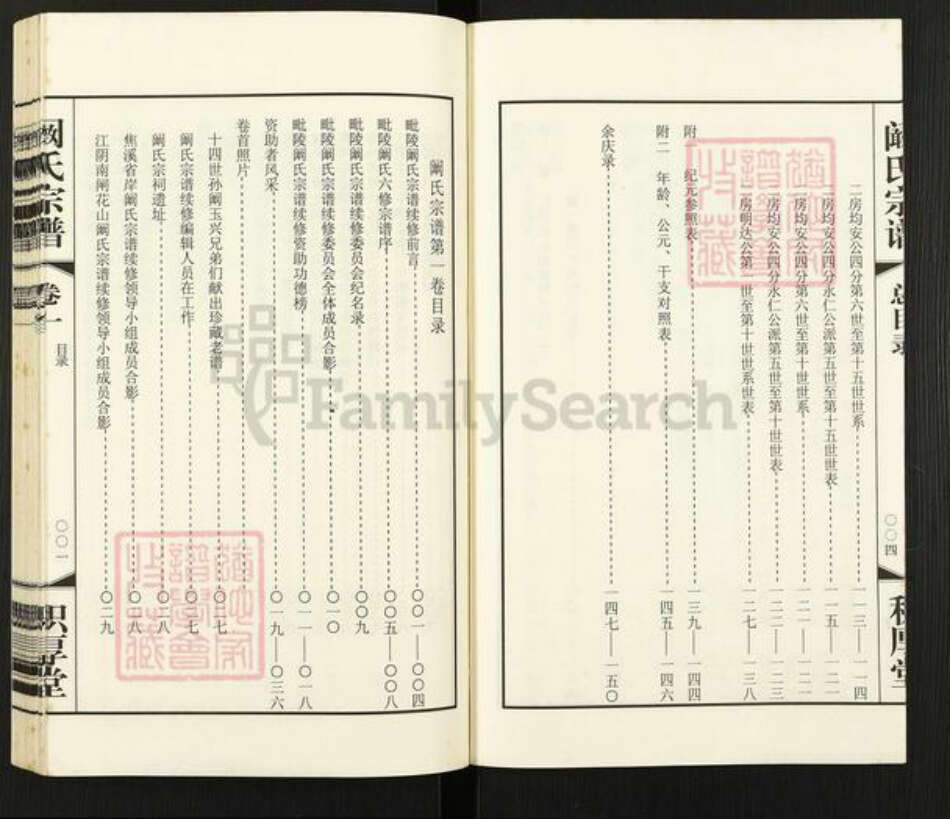 阚氏宗谱 总目录 〇〇四 积厚堂
二房均安公四分第六世至第十五世世系 一一三——一一四
二房均安公四分永仁公派第五世至第十五世世表 一一五——
二房均安公四分第六世至第十世世系 一二一——一二二
二房均安公四分永仁公派第五世至第十世世表 一二二——一二三
二房明达公第一世至第十世世系世表 一二七——一三八
附一 纪元参照表 一三九——一四四
附二 年龄、公元、干支对照表 一四五——一四六
余庆录 一四七——一五〇
阚氏宗谱第一卷目录
毗陵阚氏宗谱续修前言 〇〇一——〇〇四
毗陵阚氏六修宗谱序 〇〇五——〇〇八
毗陵阚氏宗谱续修委员会纪名录 〇〇九
毗陵阚氏宗谱续修委员会全体成员合影 〇一〇
毗陵阚氏宗谱续修资助功德榜 〇一一——〇一八
资助者风采 〇一九——〇三六
卷首照片
十四世孙阚玉兴兄弟们献出珍藏老谱 〇二七
阚氏宗谱续修编辑人员在工作 〇二七
阚氏宗祠遗址 〇二八
焦溪省岸阚氏宗谱续修领导小组成员合影 〇二八
江阴南闸花山阚氏宗谱续修领导小组成员合影 〇二九
阚氏宗谱 卷一 目录 〇〇一 积厚堂
FamilySearch